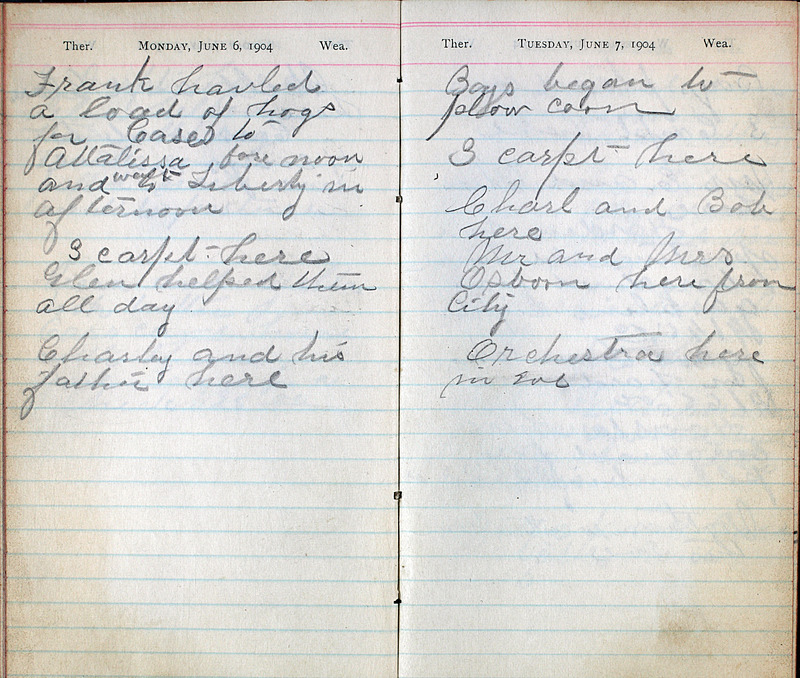 Ther. Monday, June 6, 1904 Wea.
Frank hauled
a load of hogs
for Cases to
Attalissa fore noon
and went to Liberty in
afternoon
3 carpt. here
Glen helped them
all day
Charley and his
father here
Ther. Tuesday, June 7, 1904 Wea.
Boys began to
plow corn
3 carpt here
Charl and Bob
here
Mr and Mrs
Osborn here from
City
Orchestra here
in eve